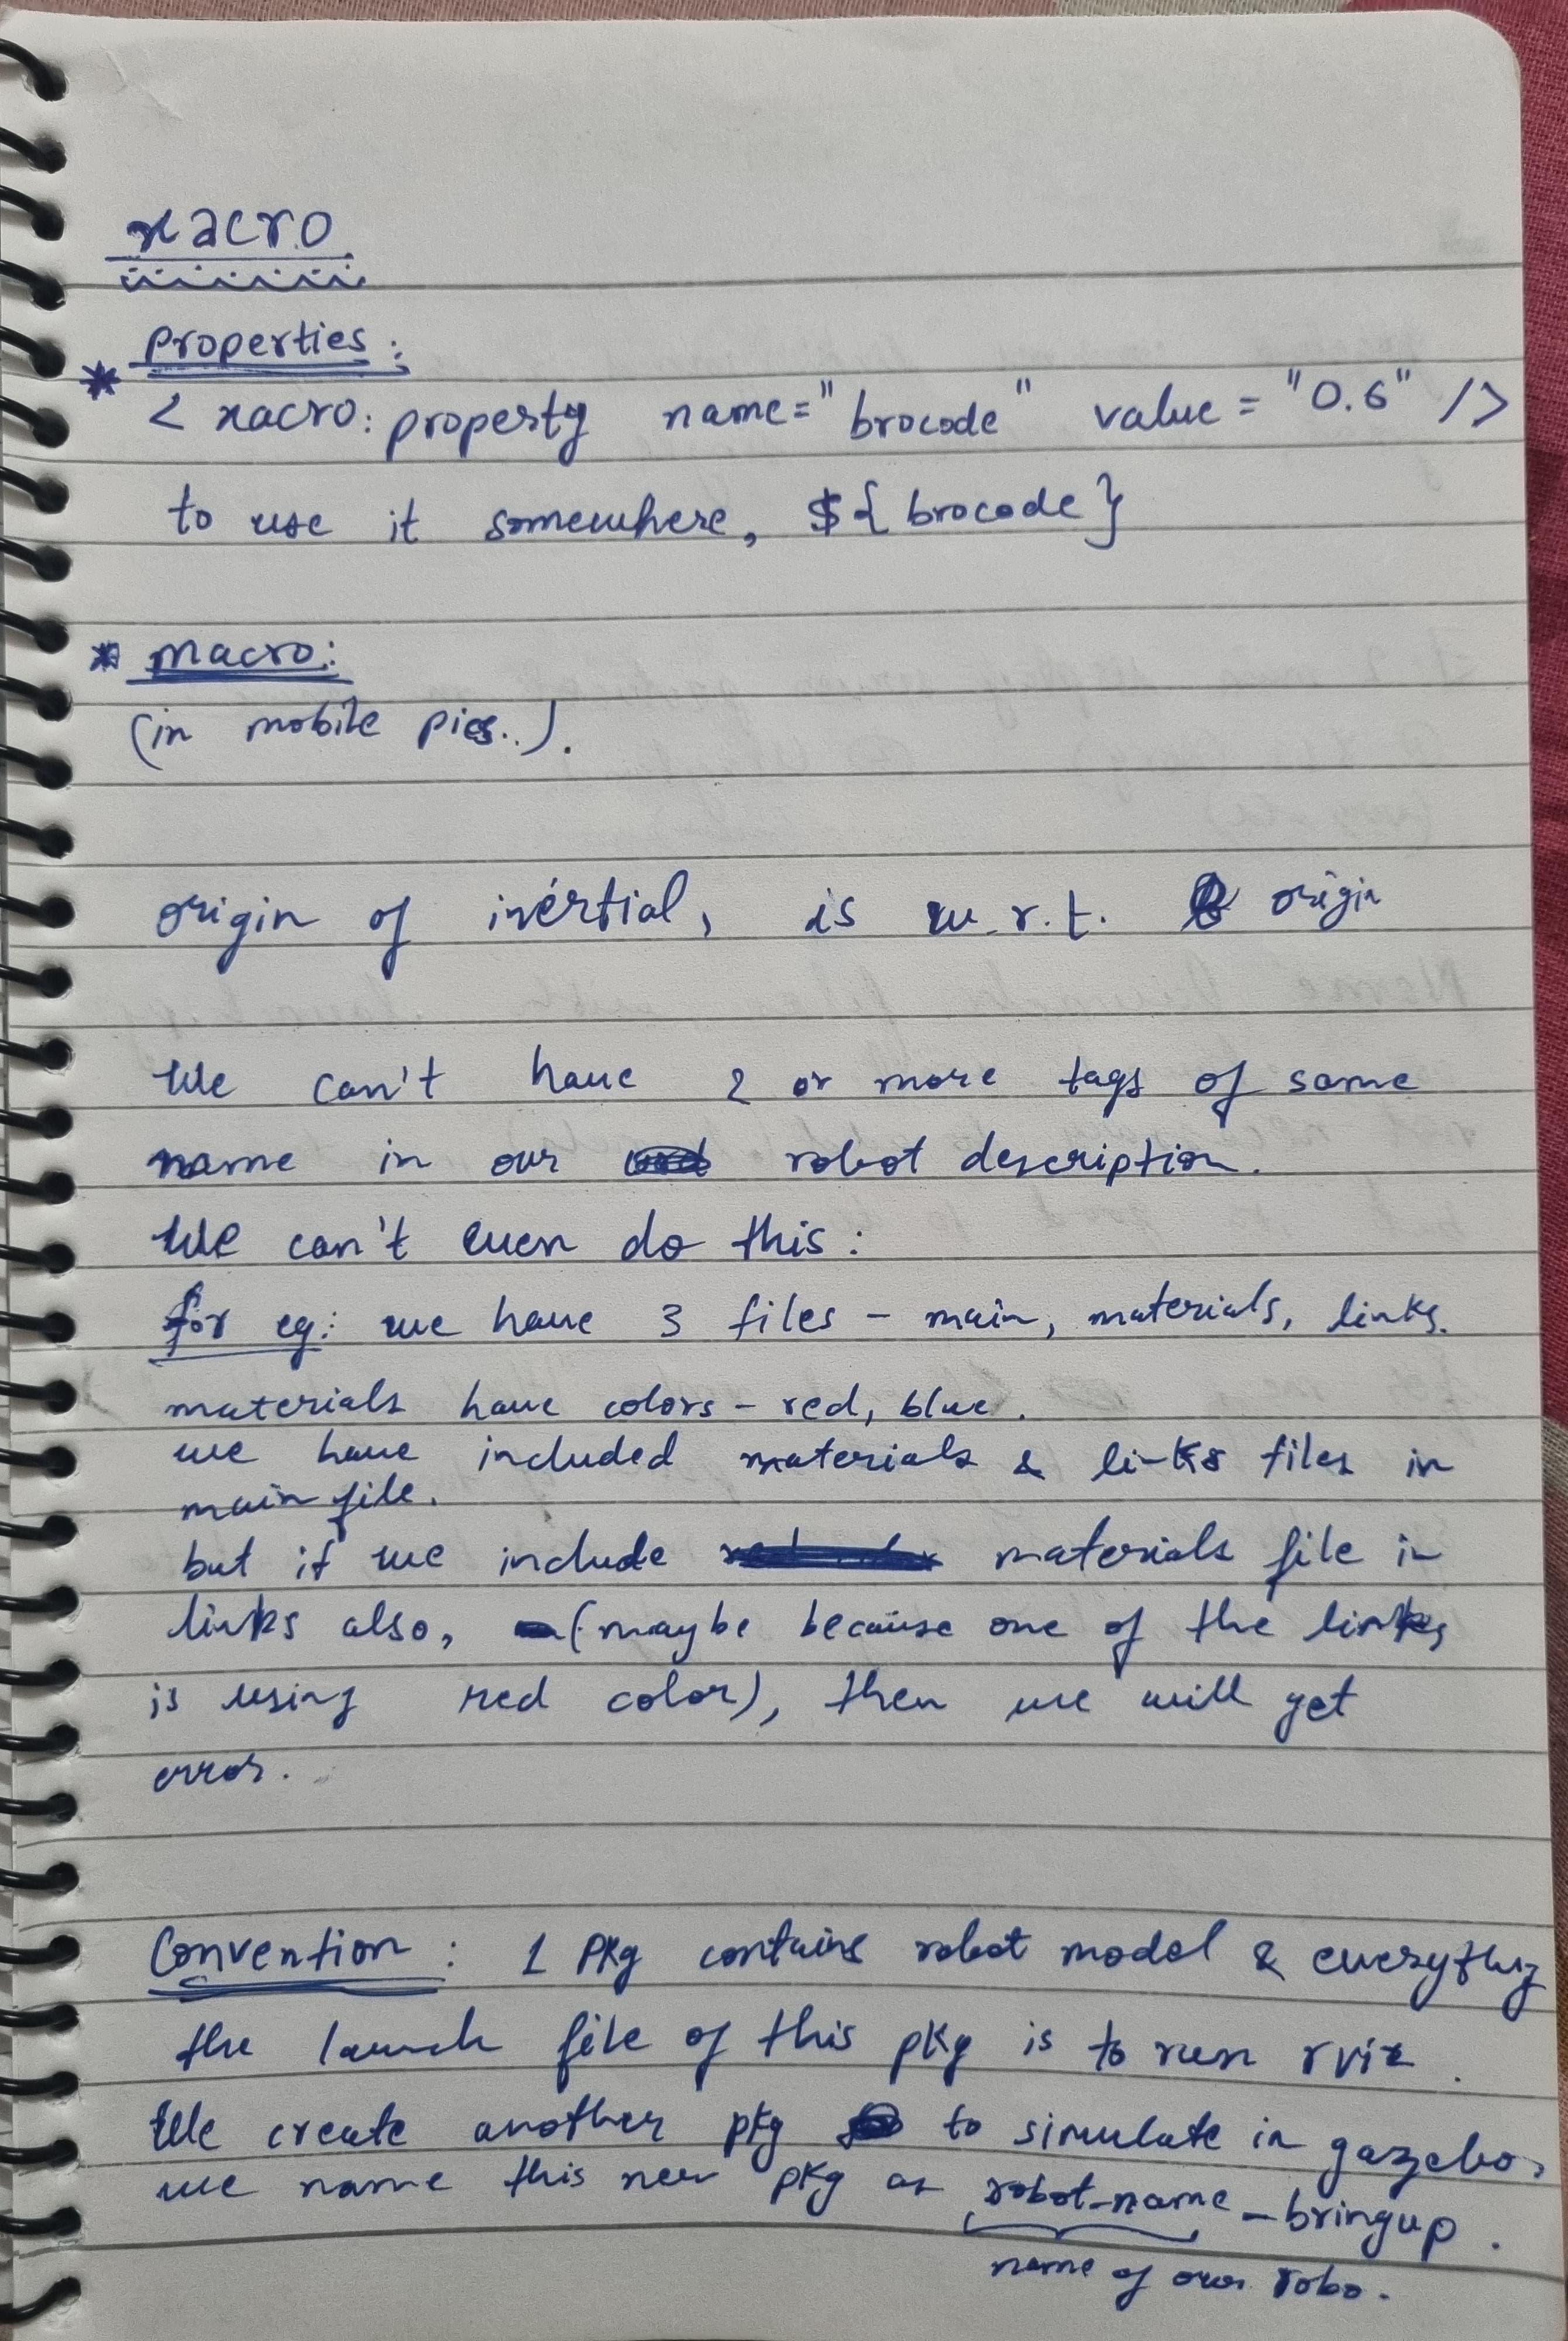 xacro
Properties:
* < xacro: property name="brocode" value = "0.6" />
to use it somewhere, ${brocode}
* macro:
(in mobile pics..).
origin of inertial, is w.r.t. origin
We can't have 2 or more tags of same
name in our robot description.
We can't even do this:
for eg: we have 3 files - main, materials, links.
materials have colors - red, blue.
we have included materials & links files in
main file.
but if we include materials file in
links also, (maybe because one of the links
is using red color), then we will get
error.
Convention: 1 pkg contains robot model & everything
the launch file of this pkg is to run rviz.
We create another pkg to simulate in gazebo,
we name this new pkg as robot-name_bringup.
name of our robo.